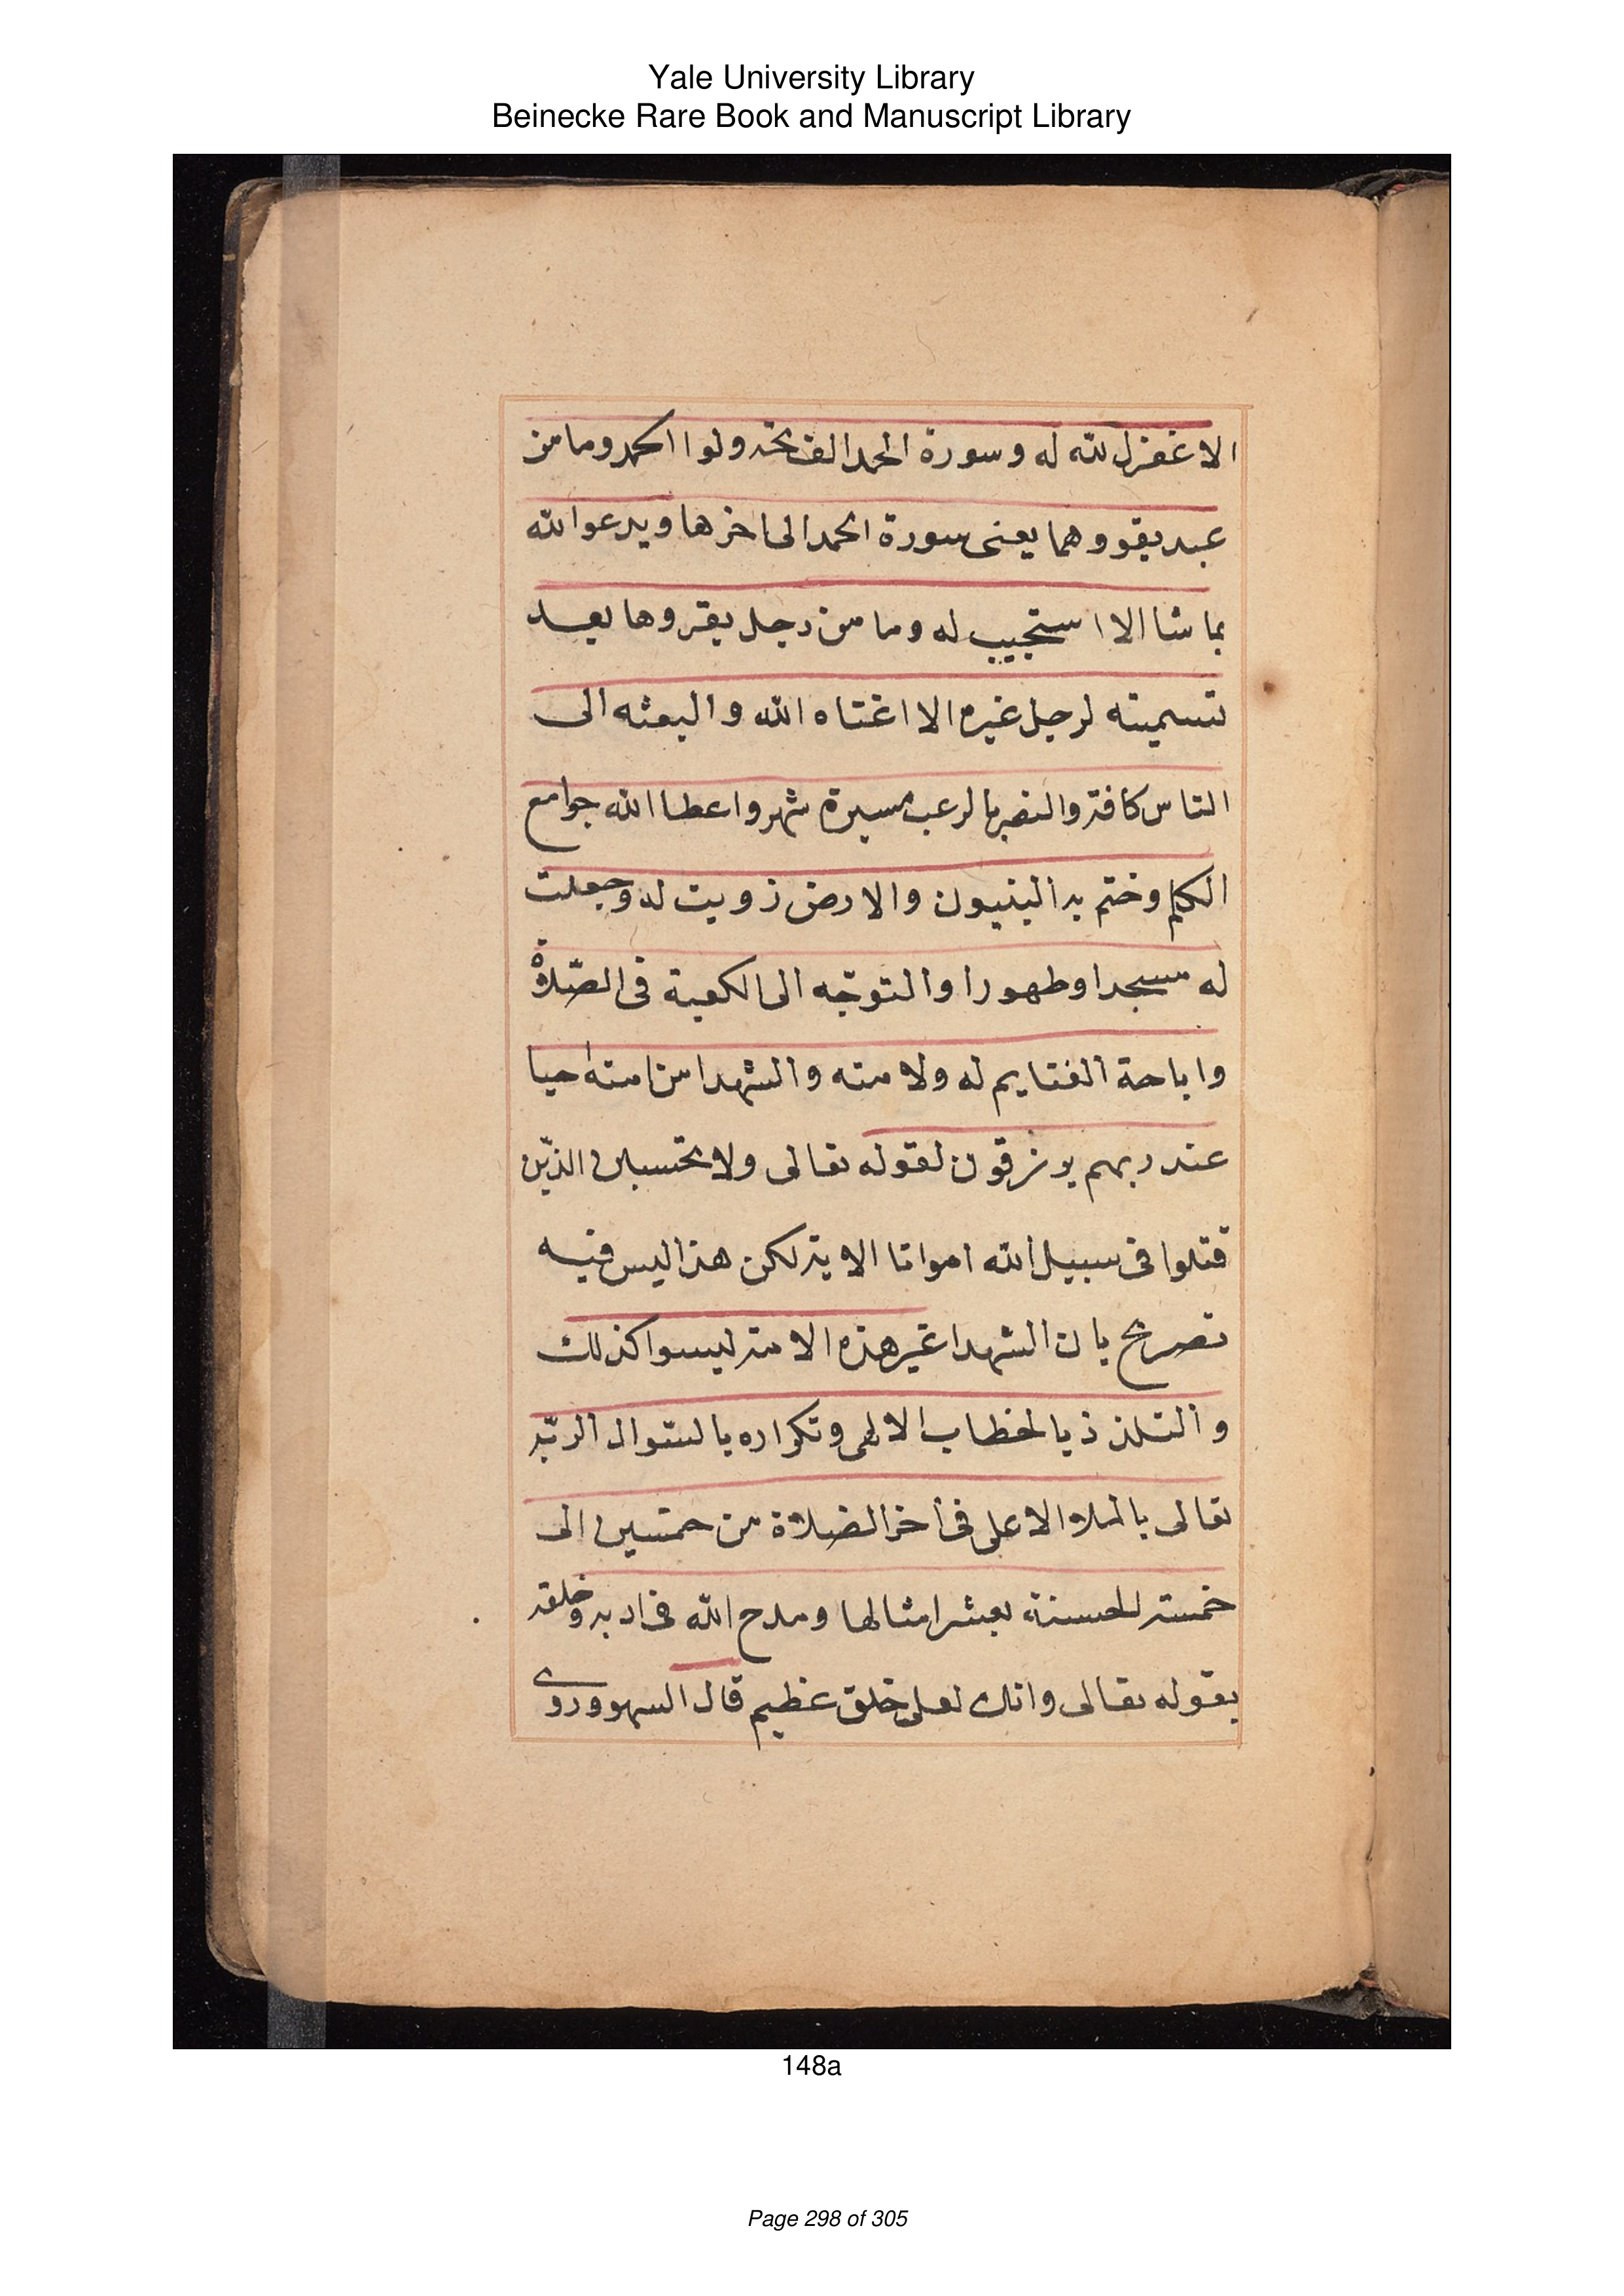 Yale University Library
Beinecke Rare Book and Manuscript Library
الا غفرل لله له وسورة الحمد الفاتحه ولوا الحمد وما من
عبد يقووهما يعنى سورة الحمد الى اخرها ويدعوا لله
بما شا الا استجيب له وما من رجل يقروها بعد
تسميته لرجل غيره الا اغناه الله والبعثه الى
الناس كافة والنصر بالرعب مسيرة شهر واعطا الله جوامع
الكلم وختم به النبيون والارض زويت له وجعلت
له مسجدا وطهورا والتوجّه الى الكعبة فى الصّلاة
واباحة الغنايم له ولامته والشهدا من امته احيا
عند ربهم يرزقون لقوله تعالى ولا تحسبن الذّين
قتلوا فى سبيل الله امواتا الاية لكن هذا ليس فيه
تصريح بان الشهدا غير هذه الامة ليسوا كذلك
والتلذذ بالخطاب الالهى وتكراره بالسوال لربّه
تعالى بالملاء الاعلى فى اخر الصلاة من خمسين الى
خمسة للحسنة بعشر امثالها ومدح الله فى ادبه وخلقه
بقوله تعالى وانك لعلى خلق عظيم قال السهروردى
148a
Page 298 of 305